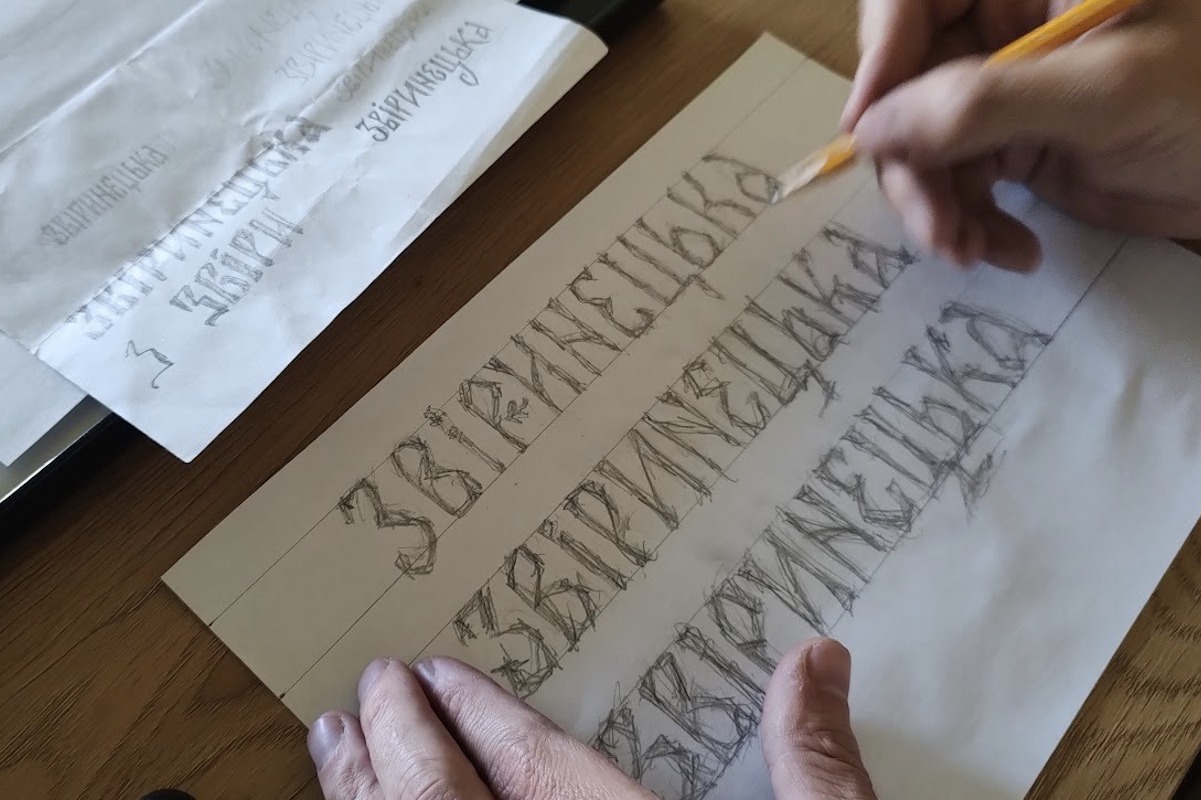 ЗВІРИНЕЦЬКА
ЗВІРИНЕЦЬКА
ЗВІРИНЕЦЬКА
ЗВІРИНЕЦЬКА
ЗВІРИ
З
ЗВІРИНЕЦЬКА
ЗВІРИНЕЦЬКА
ЗВІРИНЕЦЬКА